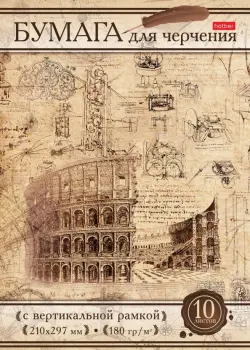 hatber
БУМАГА для черчения
10
листов
с вертикальной рамкой
210х297 мм • 180 гр/м²